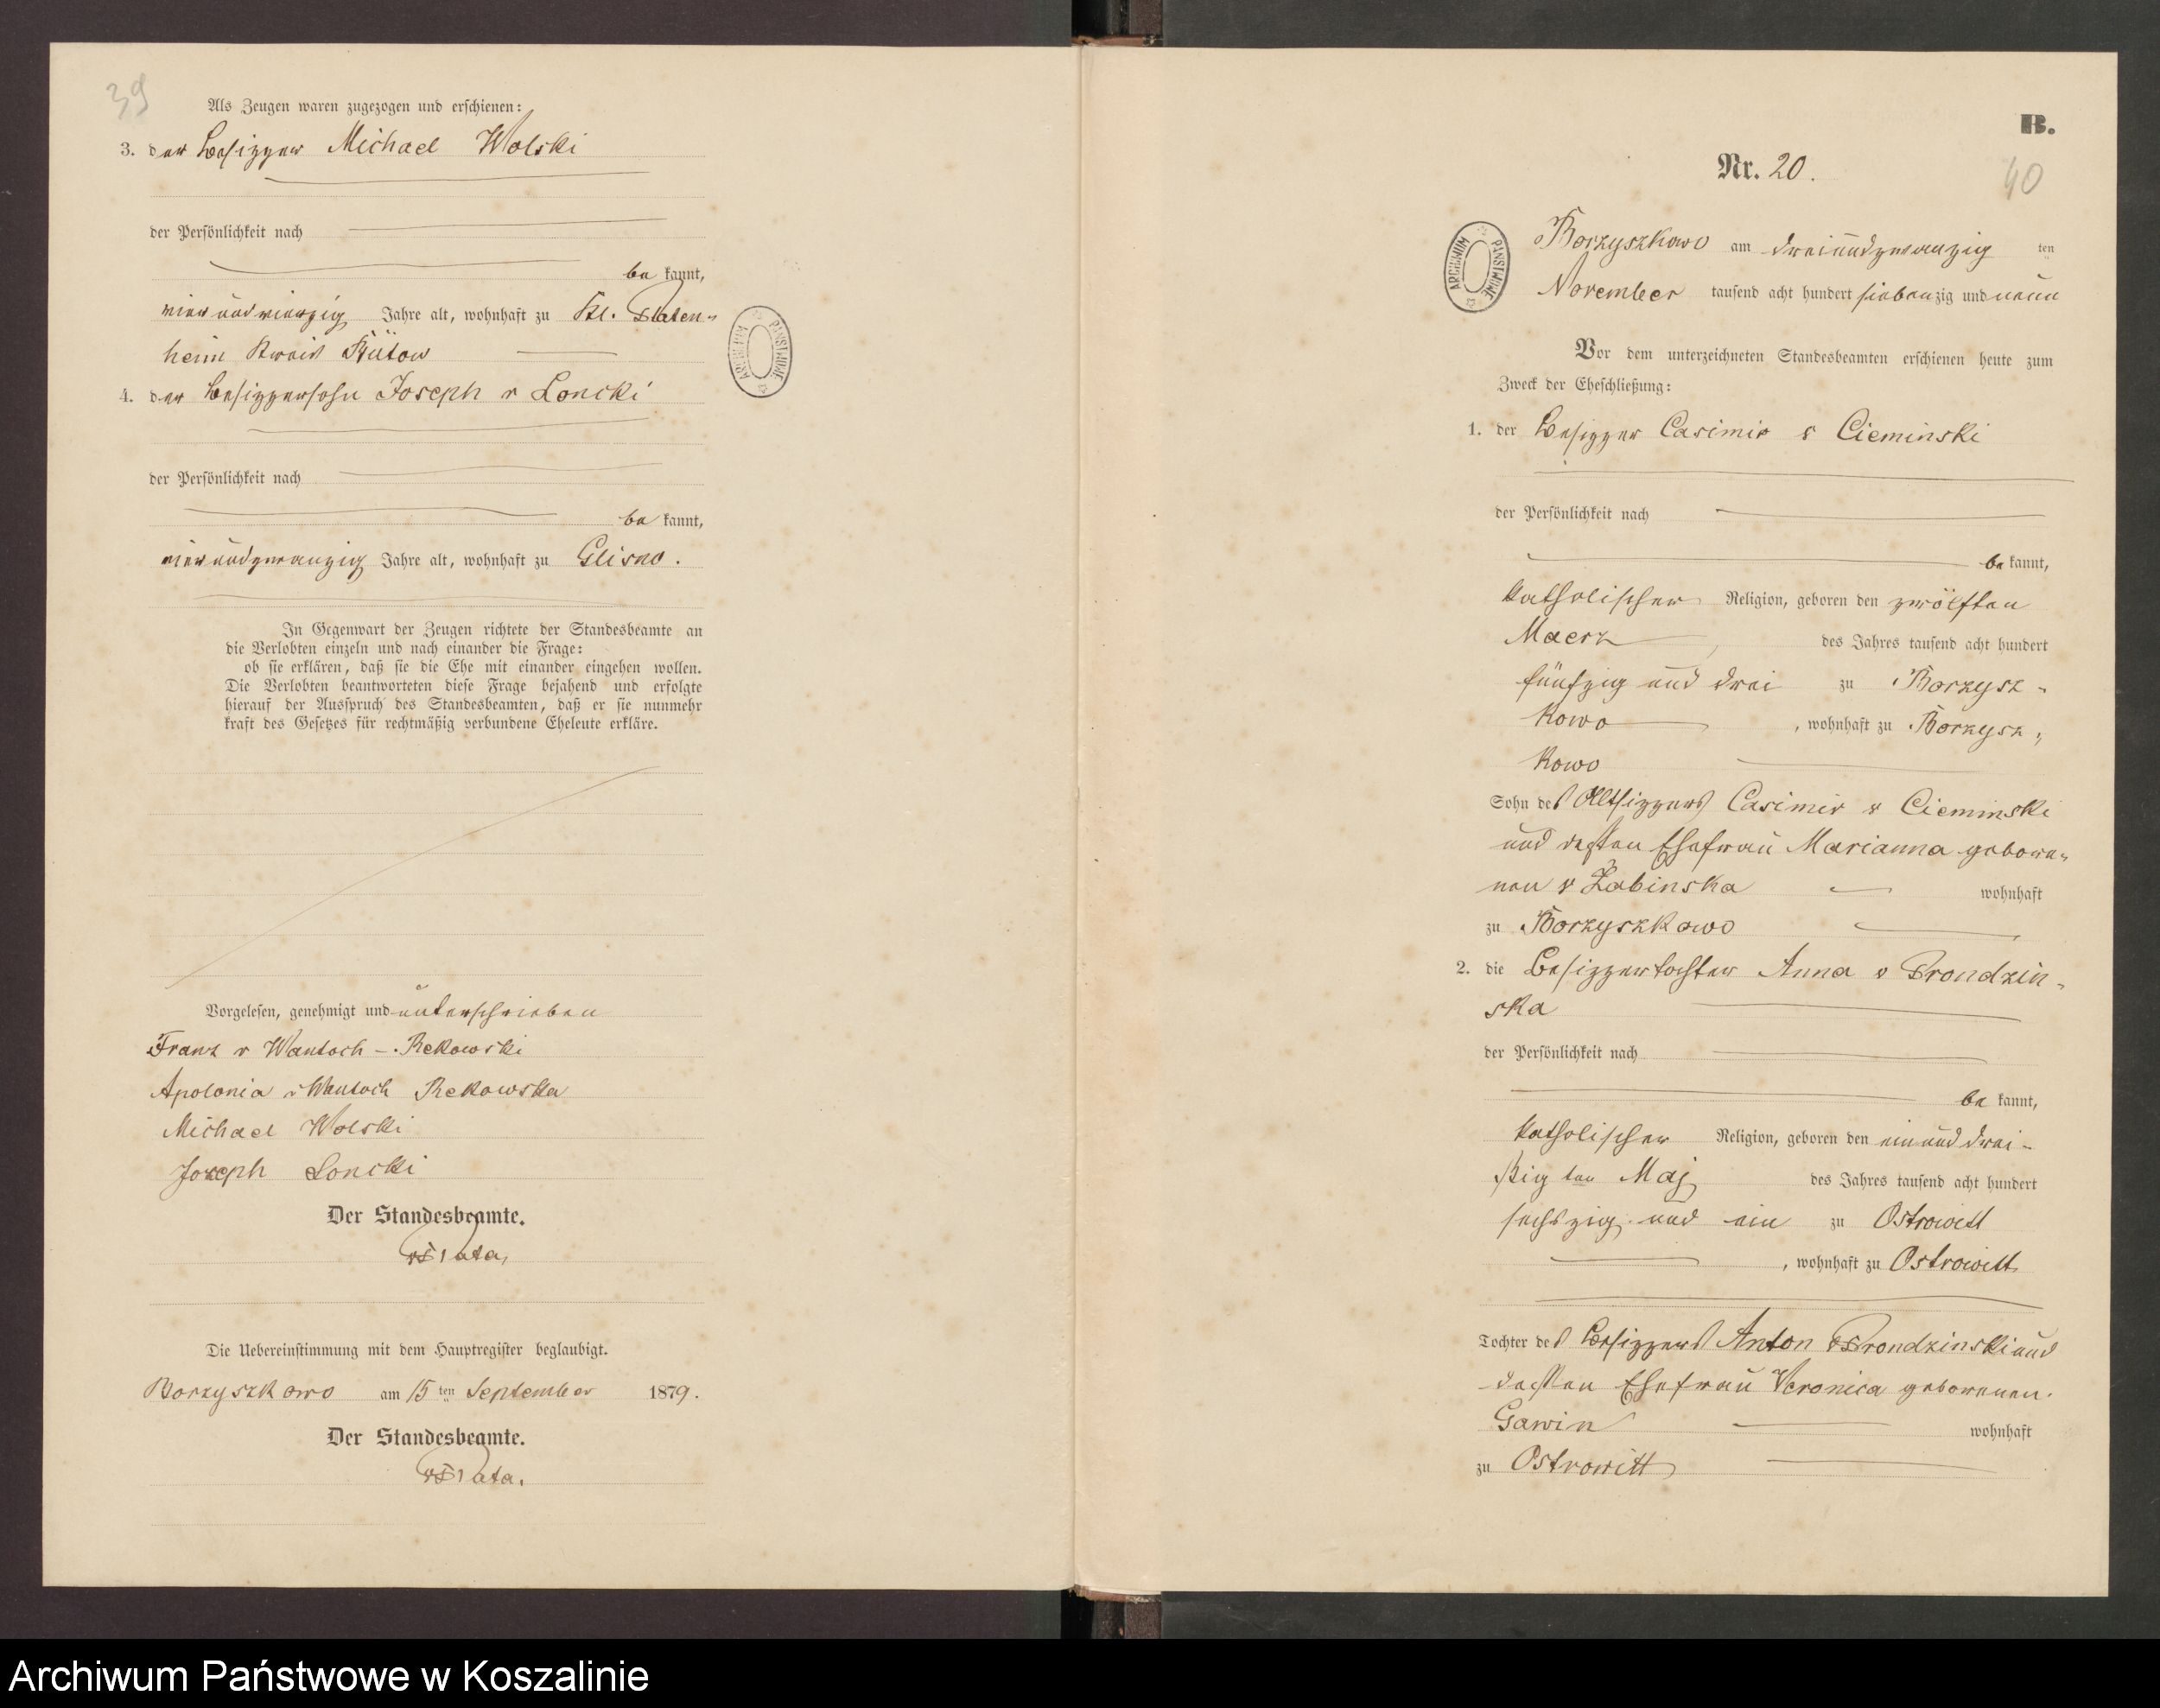 39
Als Zeugen waren zugezogen und erschienen:
3. der Besitzer Michael Wolski
der Persönlichkeit nach
be kannt,
vier und vierzig Jahre alt, wohnhaft zu Kl. Platen-
heim Kreis Bütow
4. der Besitzersohn Joseph v Loncki
der Persönlichkeit nach
be kannt,
vier und zwanzig Jahre alt, wohnhaft zu Glisno.
In Gegenwart der Zeugen richtete der Standesbeamte an
die Verlobten einzeln und nach einander die Frage:
ob sie erklären, daß sie die Ehe mit einander eingehen wollen.
Die Verlobten beantworteten diese Frage bejahend und erfolgte
hierauf der Ausspruch des Standesbeamten, daß er sie nunmehr
kraft des Gesetzes für rechtmäßig verbundene Eheleute erkläre.
Vorgelesen, genehmigt und unterschrieben
Franz v Wantoch-Rekowski
Apolonia v Wantoch Rekowska
Michael Wolski
Joseph Loncki
Der Standesbeamte.
Die Uebereinstimmung mit dem Hauptregister beglaubigt.
Borzyszkowo am 15 ten September 1879.
Der Standesbeamte.
ARCHIWUM PAŃSTWOWE
B.
Nr. 20.
40
ARCHIWUM PAŃSTWOWE
Borzyszkowo am dreiundzwanzig ten
November tausend acht hundert siebenzig und neun
Vor dem unterzeichneten Standesbeamten erschienen heute zum
Zweck der Eheschließung:
1. der Besitzer Casimir v Cieminski
der Persönlichkeit nach
be kannt,
katholischer Religion, geboren den zwölften
Maerz des Jahres tausend acht hundert
fünfzig und drei zu Borzysz-
kowo, wohnhaft zu Borzysz-
kowo
Sohn des Altsitzers Casimir v Cieminski
und dessen Ehefrau Marianna gebore-
nen v Żabinska wohnhaft
zu Borzyszkowo
2. die Besitzertochter Anna v Prondzin-
ska
der Persönlichkeit nach
be kannt,
katholischer Religion, geboren den ein und drei-
ßig ten Maj des Jahres tausend acht hundert
sechszig und ein zu Ostrowitt
, wohnhaft zu Ostrowitt
Tochter des Besitzers Anton v Prondzinski und
dessen Ehefrau Veronica geborenen
Gawin wohnhaft
zu Ostrowitt
Archiwum Państwowe w Koszalinie